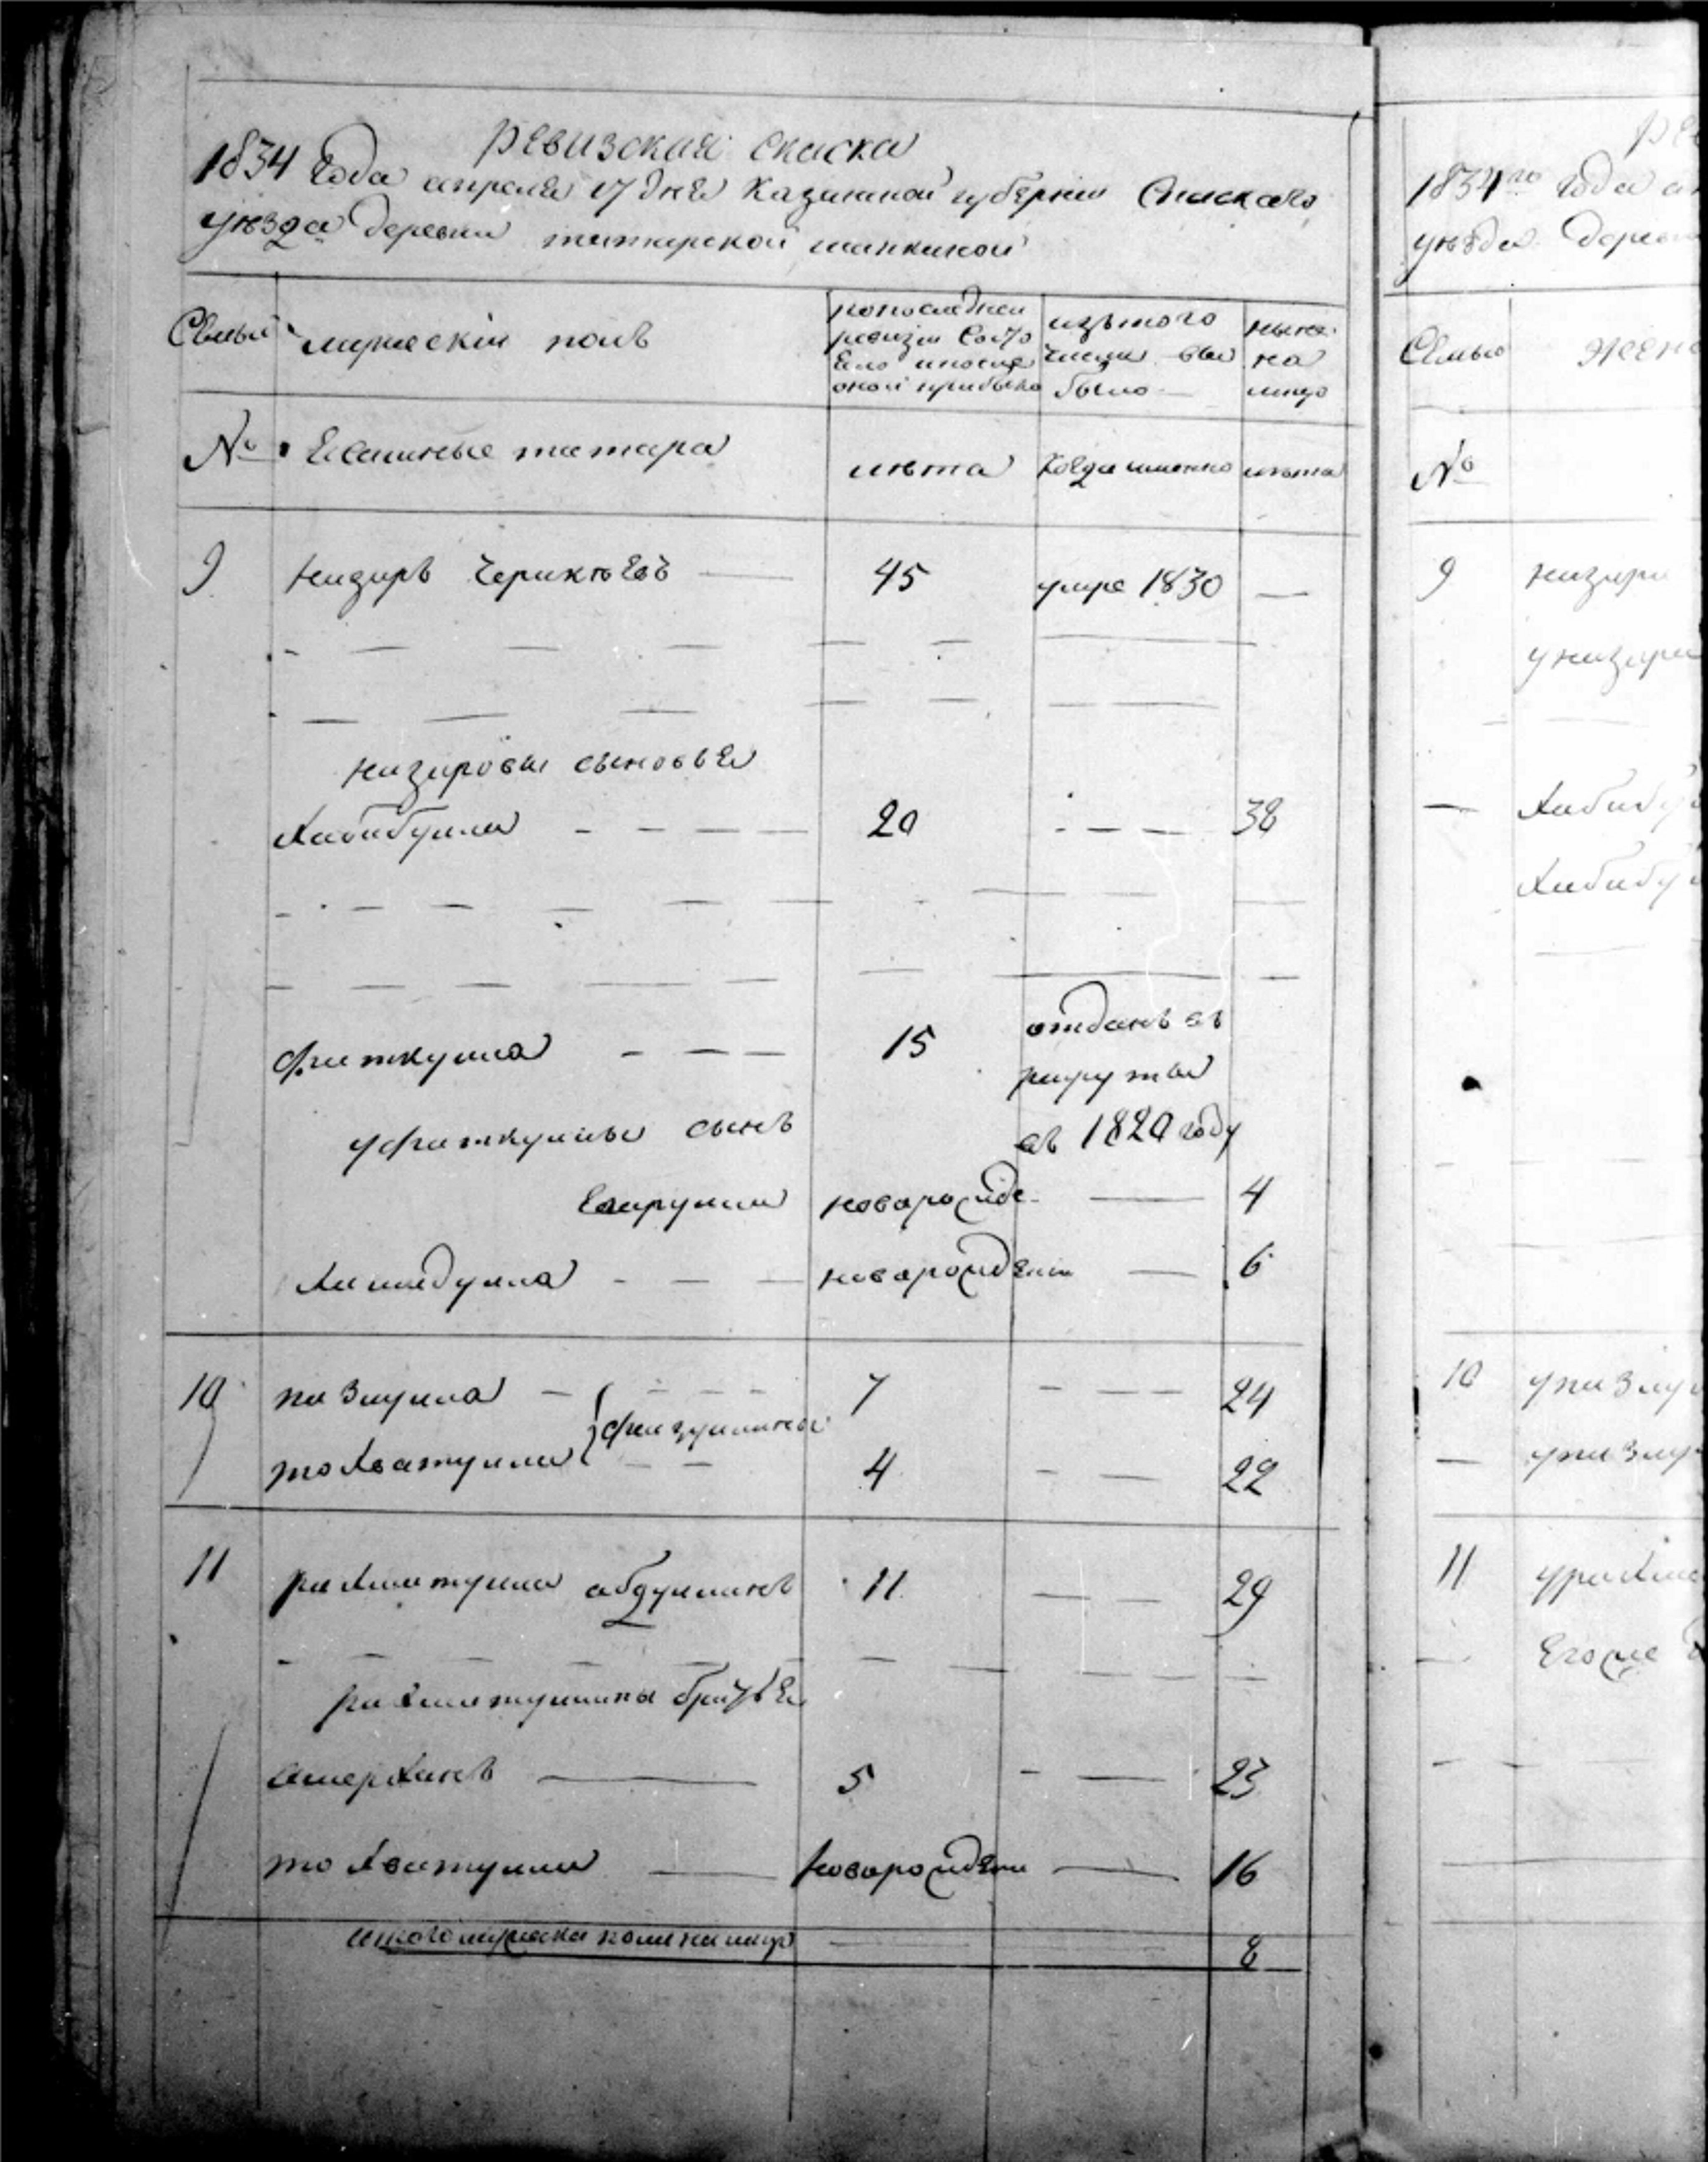 ревизская скаска
1834 года апреля 17 дня Казанской губернии Спаскаго
уѣзда деревни татарской
Семьи мужескiй полъ
по последней ревизiи состояло и после оной прибыло
изъ того числа выбыло
ныне на лицо
№ Ясашные татара лѣта когда имянно лѣта
9 Назиръ Черикѣевъ 45 умре 1830 —
Назировы сыновья
Хабибулла 20 — 38
Фаткулла 15 отданъ въ
рекруты
у Фаткуллы сынъ въ 1820 году
новарожде 4
новарождени 6
10 7 24
Фазуллины
тохватулла 4 22
11 рахматулла абдуллинъ 11 29
рахматуллины братья
амерханъ 5 23
тохватулла новарождени 16
итого мужеска пола на лицо 8
ре
1834го года а
уѣзда деревн
Семьи жен
№
9 назира
у назира
— Хабибу
Хабибу
10
—
11 у рахма
Его же